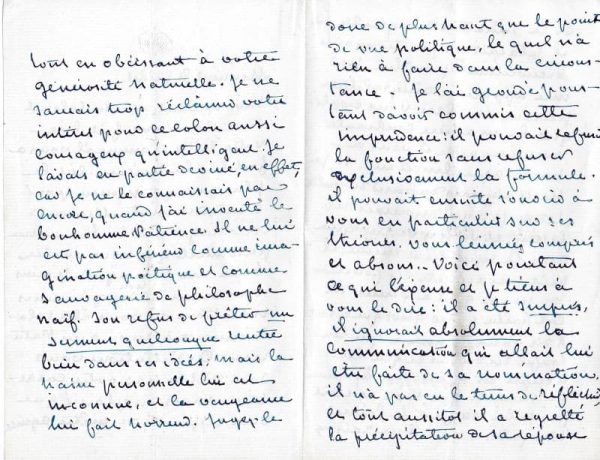 tout en obéissant à votre
générosité naturelle. Je ne
saurais trop réclamer votre
intérêt pour ce colon aussi
courageux qu'intelligent. Je
l'avais en partie deviné, en effet,
car je ne le connaissais pas
encore, quand j'ai inventé le
bonhomme Patience. Il ne lui
est pas inférieur comme ima-
gination poétique et comme
sauvagerie de philosophe
naïf. Son refus de prêter un
serment quelconque rentre
bien dans ses idées; mais la
haine personnelle lui est
inconnue, et la vengeance
lui fait horreur. Jugez-le
donc de plus haut que le point
de vue politique, lequel n'a
rien à faire dans la circons-
tance. Je l'ai grondé pour-
tant d'avoir commis cette
imprudence: il pouvait refuser
la fonction sans refuser
exclusivement la formule.
il pouvait ensuite s'ouvrir à
vous en particulier sur ses
théories. Vous l'eussiez compris
et absous.. Voici pourtant
ce qui l'excuse et je tiens à
vous le dire: il a été surpris,
il ignorait absolument la
communication qui allait lui
être faite de sa nomination,
il n'a pas eu le tems de réfléchir,
et tout aussitôt il a regretté
la précipitation de sa réponse